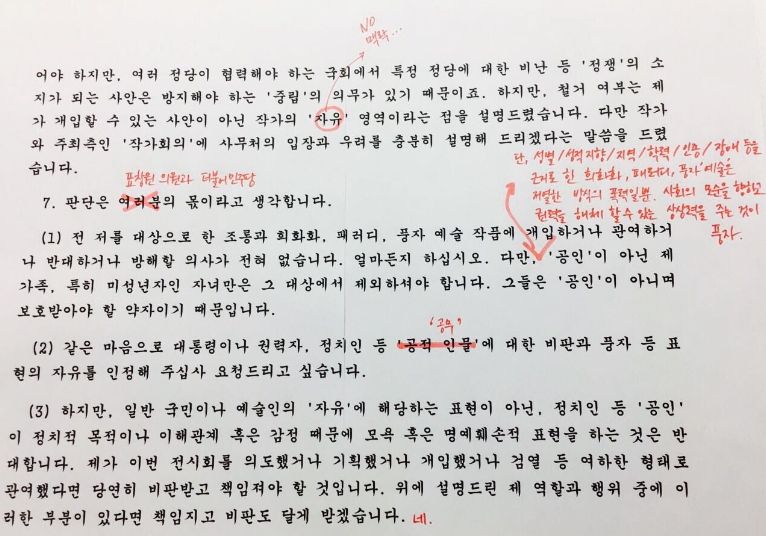 NO
맥락...
어야 하지만, 여러 정당이 협력해야 하는 국회에서 특정 정당에 대한 비난 등 '정쟁'의 소
지가 되는 사안은 방지해야 하는 '중립'의 의무가 있기 때문이죠. 하지만, 철거 여부는 제
가 개입할 수 있는 사안이 아닌 작가의 '자유' 영역이라는 점을 설명드렸습니다. 다만 작가
와 주최측인 '작가회의'에 사무처의 입장과 우려를 충분히 설명해 드리겠다는 말씀을 드렸
습니다.
단, 성별/성적지향/지역/학력/인종/장애 등을
근거로 한 희화화, 패러디, 풍자 예술은
저열한 방식의 폭력일뿐. 사회의 모순을 행하고
권력을 해체 할 수 있는 상상력을 주는 것이
풍자.
표창원 의원과 더불어민주당
7. 판단은 여러분의 몫이라고 생각합니다.
(1) 전 저를 대상으로 한 조롱과 희화화, 패러디, 풍자 예술 작품에 개입하거나 관여하거
나 반대하거나 방해할 의사가 전혀 없습니다. 얼마든지 하십시오. 다만, '공인'이 아닌 제
가족, 특히 미성년자인 자녀만은 그 대상에서 제외하셔야 합니다. 그들은 '공인'이 아니며
보호받아야 할 약자이기 때문입니다.
'공무'
(2) 같은 마음으로 대통령이나 권력자, 정치인 등 '공적 인물'에 대한 비판과 풍자 등 표
현의 자유를 인정해 주십사 요청드리고 싶습니다.
(3) 하지만, 일반 국민이나 예술인의 '자유'에 해당하는 표현이 아닌, 정치인 등 '공인'
이 정치적 목적이나 이해관계 혹은 감정 때문에 모욕 혹은 명예훼손적 표현을 하는 것은 반
대합니다. 제가 이번 전시회를 의도했거나 기획했거나 개입했거나 검열 등 여하한 형태로
관여했다면 당연히 비판받고 책임져야 할 것입니다. 위에 설명드린 제 역할과 행위 중에 이
러한 부분이 있다면 책임지고 비판도 달게 받겠습니다. 네.